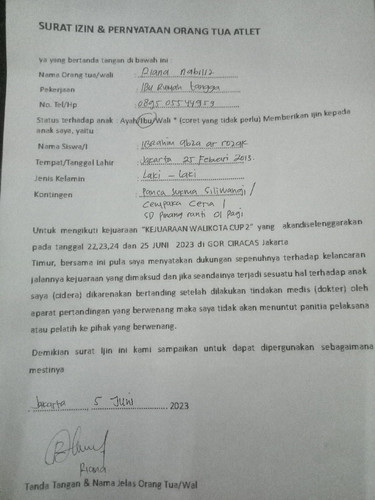 SURAT IZIN & PERNYATAAN ORANG TUA ATLET
ya yang bertanda tangan di bawah ini :
Nama Orang tua/wali : Riana Nabiliz
Pekerjaan : Ibu Rumah tangga
No. Tel/Hp : 0895 05544959
Status terhadap anak : Ayah/Ibu/Wali * (coret yang tidak perlu) Memberikan Ijin kepada
anak saya, yaitu
Nama Siswa/i : Ibrahim abza ar rozak
Tempat/Tanggal Lahir : Jakarta 25 Februari 2013.
Jenis Kelamin : Laki - laki
Kontingen : Panca Siliwangi /
Cempaka Ceria /
SD Pinang ranti 01 Pagi
Untuk mengikuti kejuaraan "KEJUARAAN WALIKOTA CUP 2" yang akandiselenggarakan
pada tanggal 22,23,24 dan 25 JUNI 2023 di GOR CIRACAS Jakarta
Timur, bersama ini pula saya menyatakan dukungan sepenuhnya terhadap kelancaran
jalannya kejuaraan yang dimaksud dan jika seandainya terjadi sesuatu hal terhadap anak
saya (cidera) dikarenakan bertanding setelah dilakukan tindakan medis (dokter) oleh
aparat pertandingan yang berwenang maka saya tidak akan menuntut panitia pelaksana
atau pelatih ke pihak yang berwenang.
Demikian surat Ijin ini kami sampaikan untuk dapat dipergunakan sebagaimana
mestinya
Jakarta 5 Juni 2023
Riana
Tanda Tangan & Nama Jelas Orang Tua/Wal